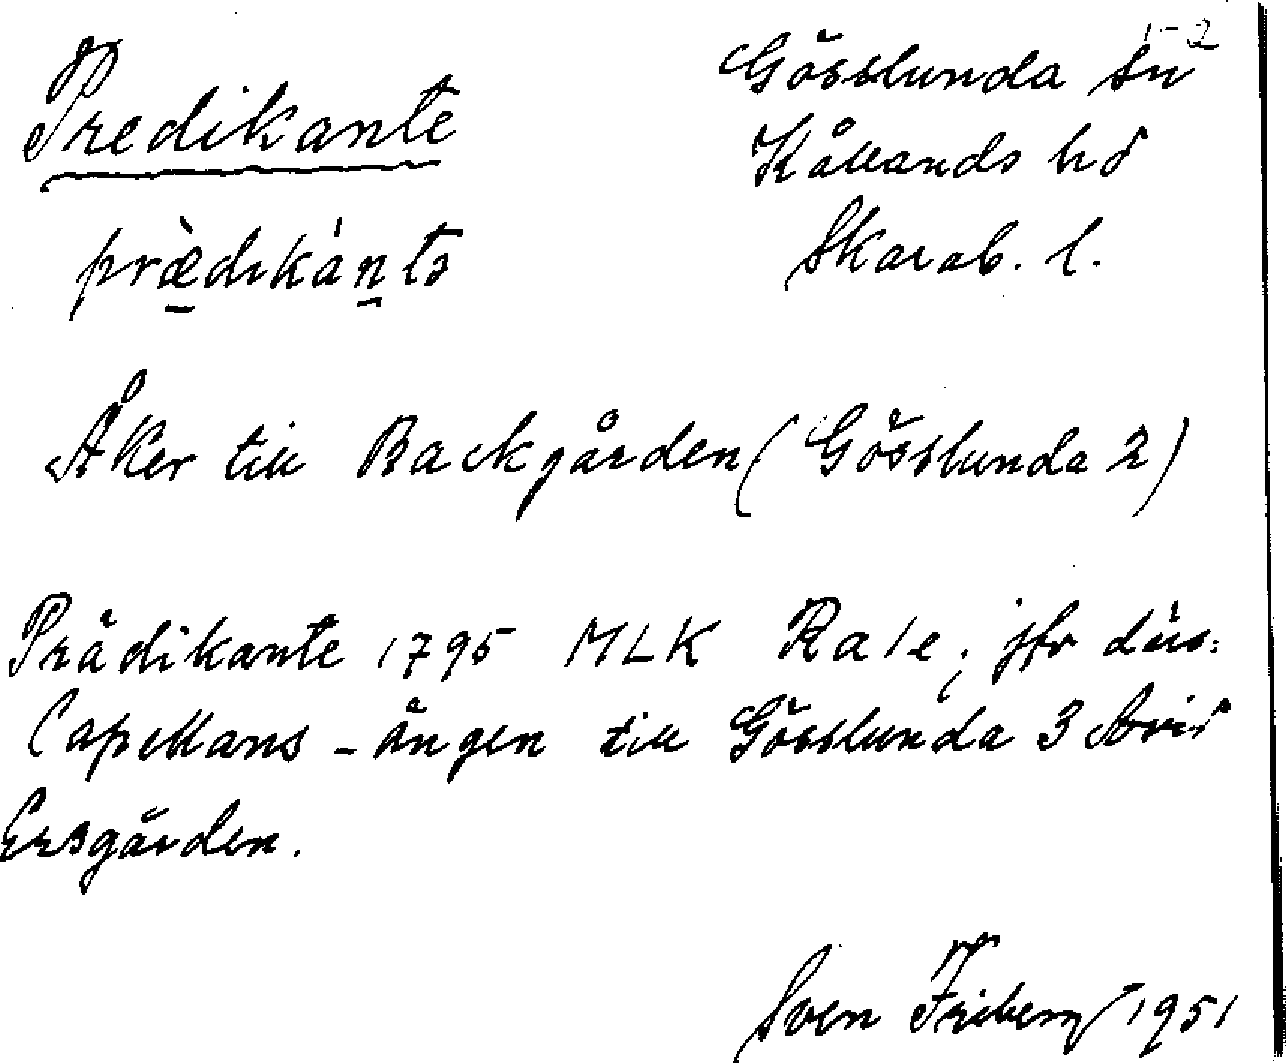 1-2
Predikante
Gösslunda sn
Kållands hd
prædıkánts
Skarab. l.
Åker till Backgården (Gösslunda 2)
Prädikante 1795 MLK Rale; jfr däs:
Capellans-ängen till Gösslunda 3 Arvid
Ersgården.
Sven Friberg 1951